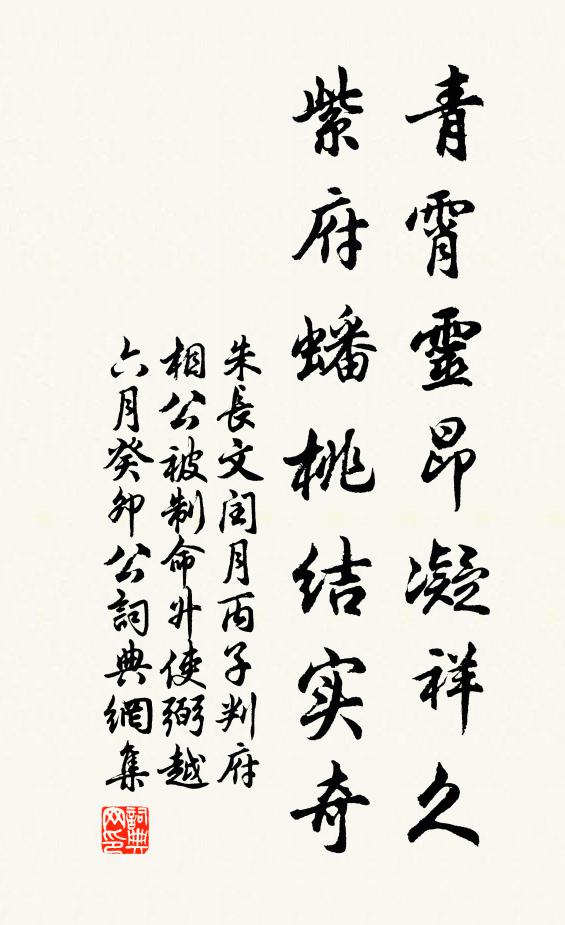 青霄靈昂凝祥久
紫府蟠桃结实奇
朱長文閏月丙子判府
相公被制命升使弼越
六月癸卯公詞典網集
詞典网印